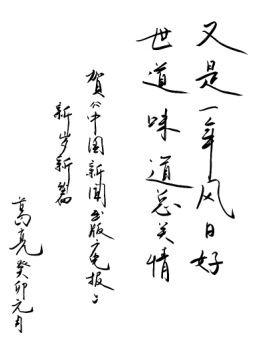 又是一年风日好
世道味道总关情
贺《中国新闻出版广电报》
新岁新篇
葛亮癸卯元月